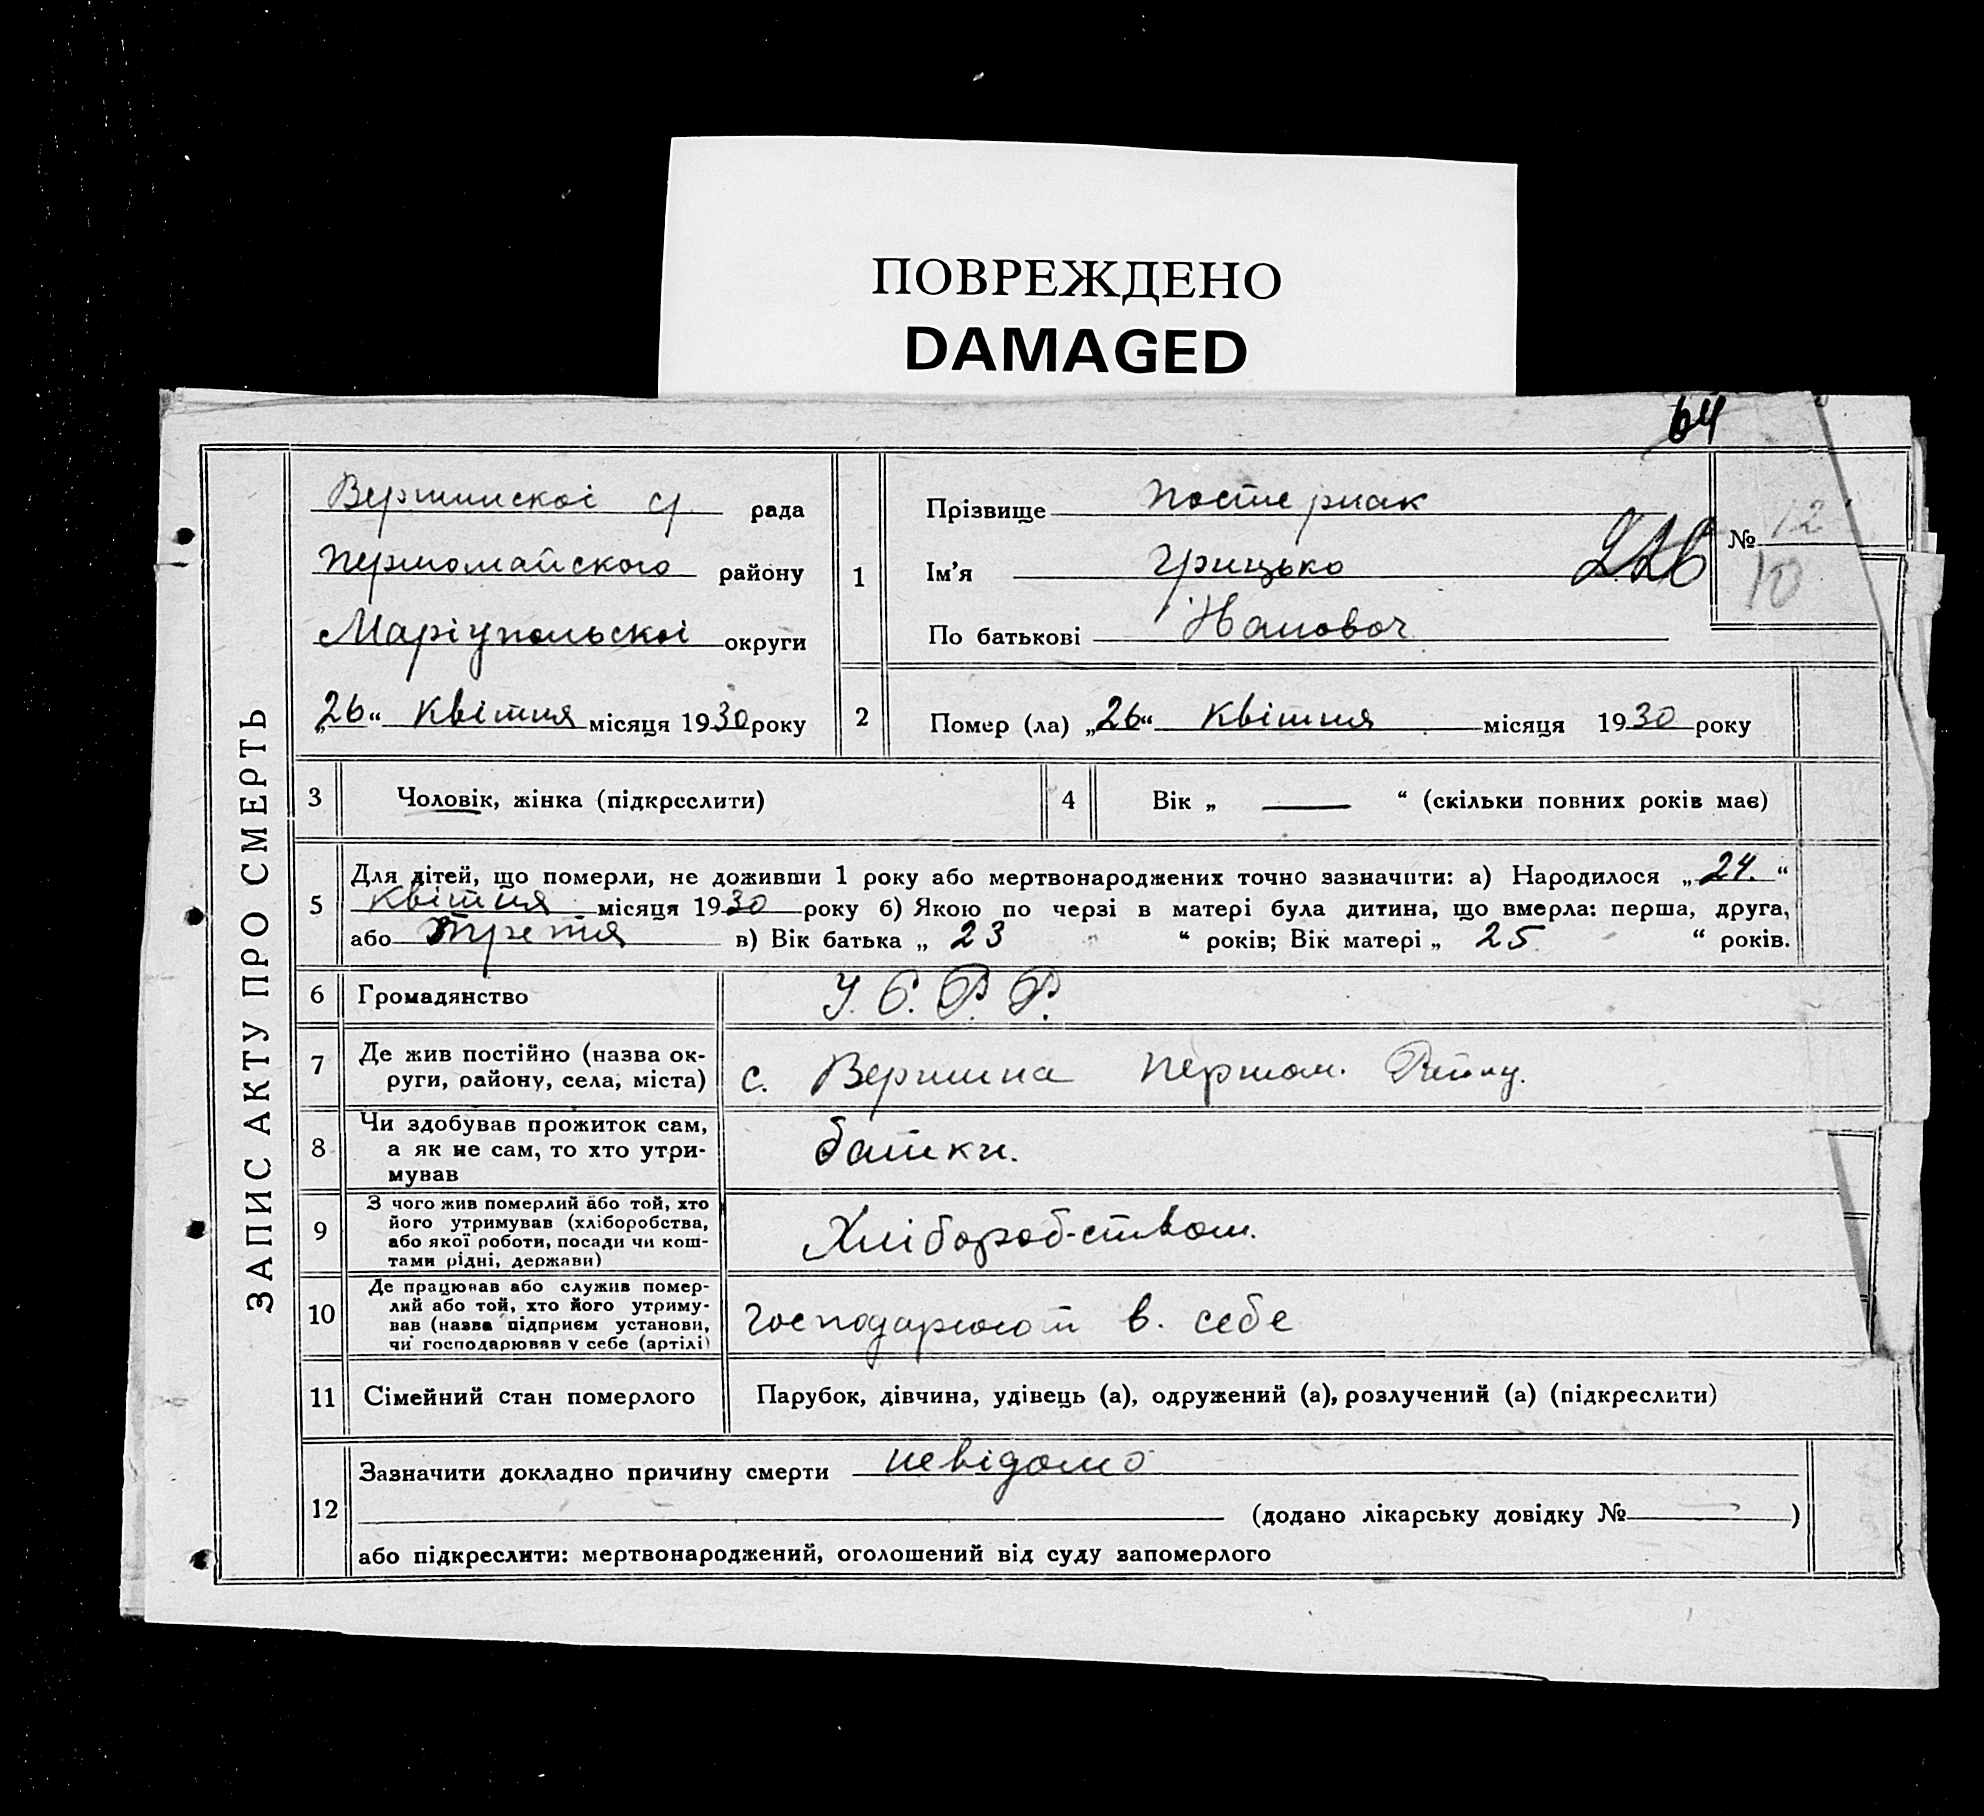 ПОВРЕЖДЕНО
DAMAGED
64
ЗАПИС АКТУ ПРО СМЕРТЬ
Вершинскоі рада
Первомайского району
Маріупольскоі округи
„26“ Квітня місяця 1930 року
1
Прізвище
Ім’я Грицько
По батькові
№ 12
10
2 Помер (ла) „26“ Квітня місяця 1930 року
3 Чоловік, жінка (підкреслити)
4 Вік „ — “ (скільки повних років має)
5 Для дітей, що померли, не доживши 1 року або мертвонароджених точно зазначити: а) Народилося „24.“
Квітня місяця 1930 року б) Якою по черзі в матері була дитина, що вмерла: перша, друга,
або третя в) Вік батька „ 23 “ років; Вік матері „ 25 “ років.
6 Громадянство У. С. Р. Р.
7 Де жив постійно (назва ок-
руги, району, села, міста) с. Вершина Первом.
8 Чи здобував прожиток сам,
а як не сам, то хто утри-
мував батки.
9 З чого жив померлий або той, хто
його утримував (хліборобства,
або якої роботи, посади чи кош-
тами рідні, держави) Хлібороб-ством.
10 Де працював або служив помер-
лий або той, хто його утриму-
вав (назва підприєм установи,
чи господарював у себе (артілі) в. себе
11 Сімейний стан померлого Парубок, дівчина, удівець (а), одружений (а), розлучений (а) (підкреслити)
12 Зазначити докладно причину смерти невідомо
(додано лікарську довідку № — )
або підкреслити: мертвонароджений, оголошений від суду запомерлого